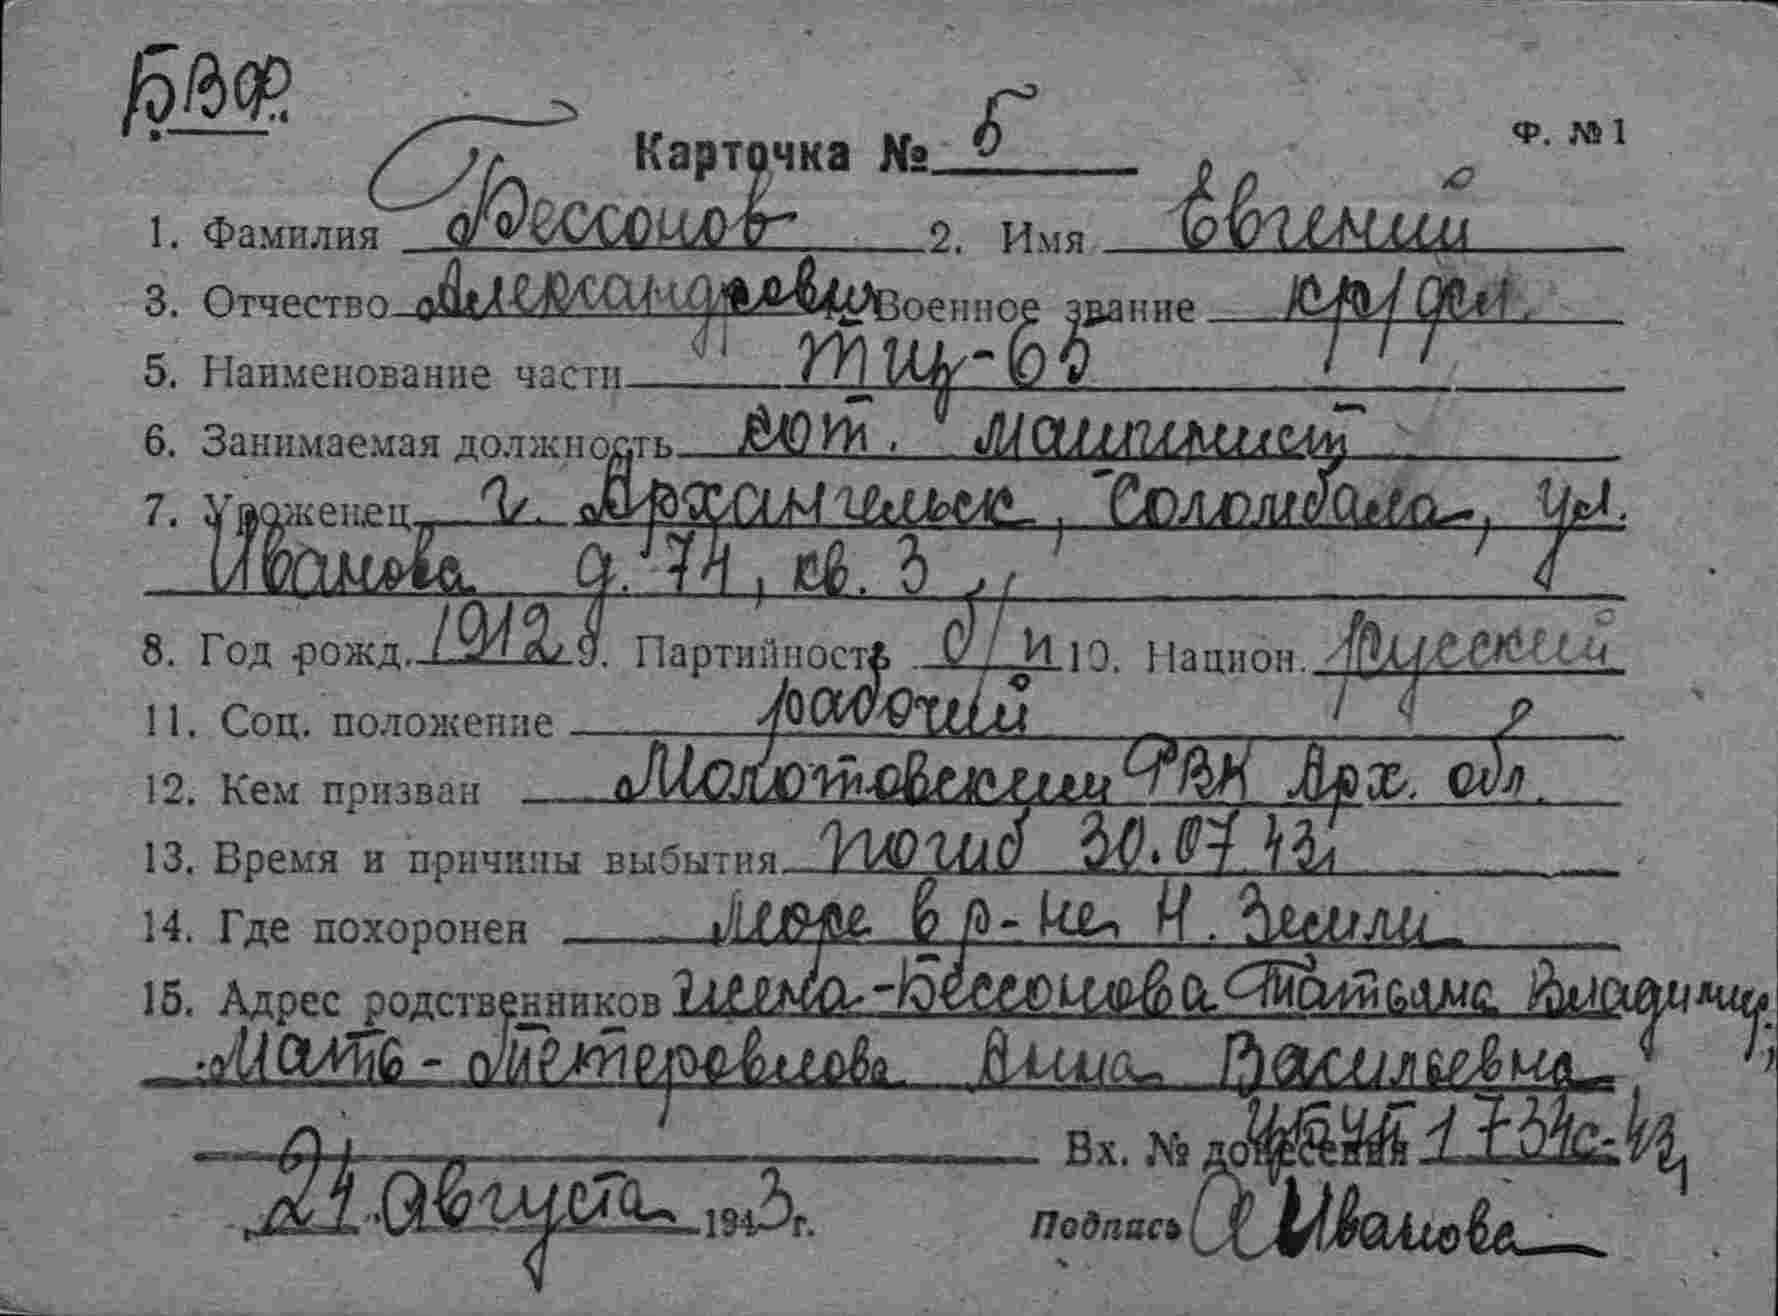 БВФ.
Карточка № 5 Ф. № 1
1. Фамилия Бессонов 2. Имя Евгений
3. Отчество Александрович Военное звание кр/фл.
5. Наименование части ТЩ-65
6. Занимаемая должность кот. машинист
7. Уроженец г. Архангельск, Соломбала, ул.
Иванова д. 74, кв. 3
8. Год рожд. 1912 9. Партийность б/п 10. Национ. русский
11. Соц. положение рабочий
12. Кем призван Молотовским РВК Арх. обл.
13. Время и причины выбытия погиб 30.07.43
14. Где похоронен море в р-не Н. Земли
15. Адрес родственников жена - Бессонова Татьяна Владимир.
Мать - Тетеревлова Анна Васильевна
Вх. № донесения 1734с-43
24 августа 1943 г. Подпись А Иванова